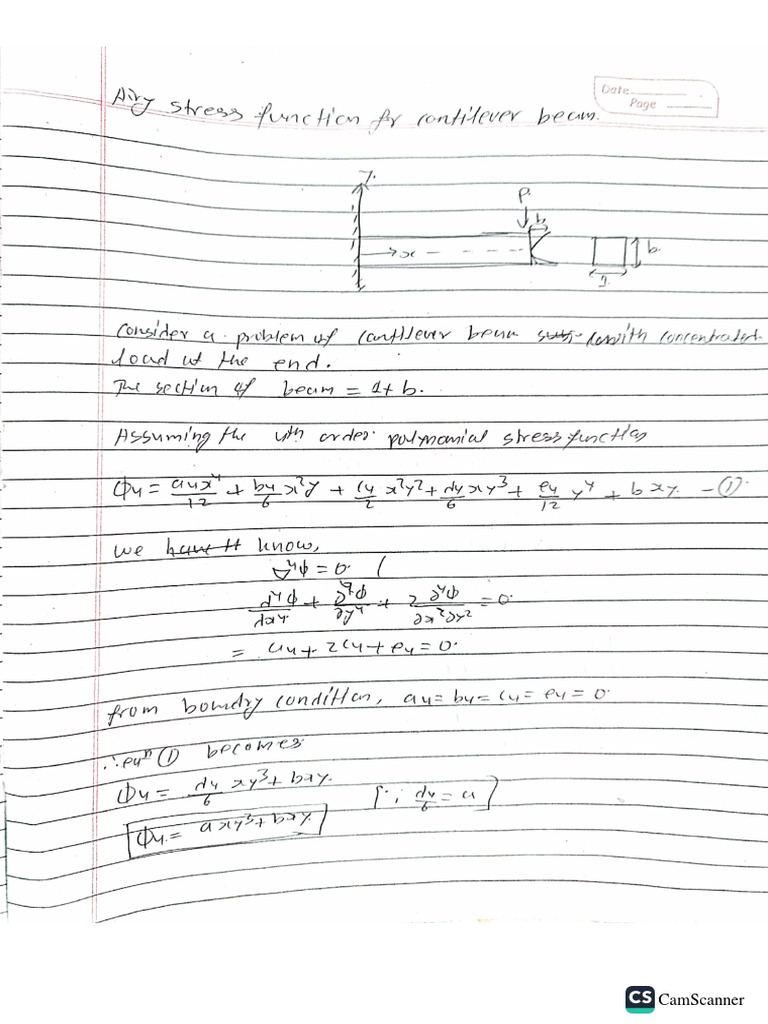 Date
Page
Airy stress function fr contilever beam.
y.
P.
h
x
b.
1.
Consider a problem of cantilever beam with concentrated
load at the end.
The section of beam = 1 + b.
Assuming the 4th order polynomial stress function
ϕ4 = a4x⁴/12 + b4/6 x³y + c4/2 x²y² + d4/6 xy³ + e4/12 y⁴ + b xy. - ①
we have know,
∇⁴ϕ = 0.
∂⁴ϕ/∂x⁴ + ∂⁴ϕ/∂y⁴ + 2 ∂⁴ϕ/∂x²∂y² = 0.
= a4 + 2c4 + e4 = 0.
from boundry condition, a4 = b4 = c4 = e4 = 0
∴ eqⁿ ① becomes
ϕ4 = d4/6 xy³ + bxy. [∵ d4/6 = a]
ϕ4 = axy³ + bxy.
CS CamScanner